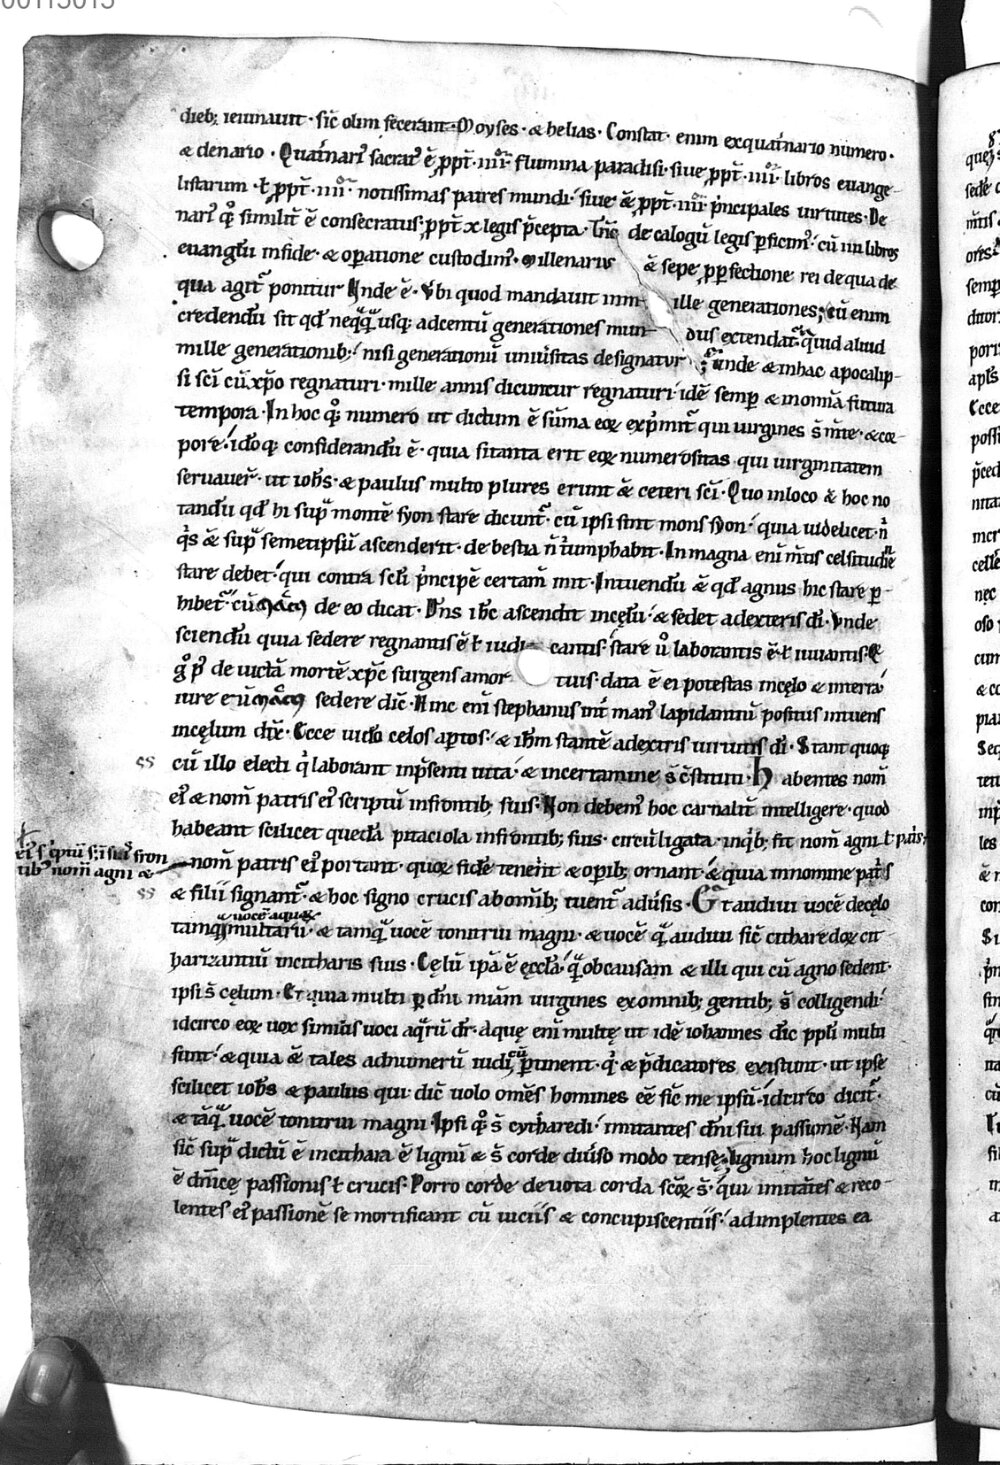 00113013
dieb; ieiunauit · sic̄ olim fecerant Moyses · & helias · Constat · enim ex quat̄nario numero ·
& denario · Quat̄nariꝰ sacratꝰ ē ꝓpt̄ · iiii · flumina paradisi · siue ꝓpt̄ · iiii · libros euange-
listarum · ł ꝓpt̄ · iiii · notissimas partes mundi · siue &̄ ꝓpt̄ · iiii · p̄ncipales uirtutes · De
nariꝰ q̊ꝫ similit̄ ē consecratus; ꝓpt̄ x legis p̄cepta · decalogū legis p̄ficimꝰ · cū iiii libros
euangłii in fide · & oꝑatione custodimꝰ · Millenarius &̄ sepe ꝓ ꝑfectione rei de qua de
qua agit᷑ ponitur Vnde ē · Vbi quod mandauit in m- ille generationes; cū enim
credendū sit qd̄ neq̄q̄ usq; ad centū generationes mun- dus extendat᷑ · quid aliud
mille generationib; nisi generationū uniūsitas designatur; unde & in hac apocalip-
si sc̄i cū xp̄o regnaturi · mille annis dicuntur regnaturi · idē semꝑ & in om̄ia futura
tempora · In hoc q̊ꝫ numero ut dictum ē sūma eoꝝ exp̄mit᷑ qui uirgines s̄ m̄te · & cor-
pore · ido̅q; considerandū ē · quia si tanta erit eoꝝ numerositas qui uirginitatem
seruauer̄ · ut ioh̄s · & paulus multo plures erunt &̄ ceteri sc̄i · Quo in loco &̄ hoc no
tandū qd̄ hi sup̄ montē syon stare dicunt᷑ · cū ipsi sint mons syon · quia uidelicet · n̄
q̄s &̄ sup̄ semetipsū ascenderit · de bestia n̄ t̄umphabit · In magna eni m̄tis celsitudīe
stare debet · qui contra sc̄li p̄ncipē certam̄ init · Intuendū &̄ qd̄ agnus hic stare ꝑ-
hibet᷑ · cū de eo dicat · Dn̄s ih̄c ascendit in cęlū · & sedet ad exteris di · Vnde
sciendū quia sedere regnantis ē ł iudi- cantis · stare ů laborantis ē ł iuuantis · E
g̊ pꝰ deuictā mortē xp̄c surgens a mor- tuis · data ē ei potestas in cęlo & in terra
iure sedere dic̄ · Hinc eni stephanus int̄ manꝰ lapidantiū positus intuens
in cęlum dix̄ · Ecce uido celos aꝑtos · & ih̄m stantē ad extris uirtutis di · Stant quoq;
cū illo electi q̄ laborant in p̄senti uita · & in certamine s̄ c̄stituti · Habentes nom̄
eiꝰ & nom̄ patris eiꝰ scriptū in frontib; suis · Non debemꝰ hoc carnalit̄ intelligere · quod
habeant scilicet quedā pitaciola in frontib; suis · circūligata · in q̄b; sit nom̄ agni ł pat̄s ·
nom̄ patris eiꝰ portant · quoꝝ fidē tenent & oꝑib; ornant · & quia in nomine pat̄s
& filii signant᷑ · & hoc signo crucis ab om̄ib; tuent᷑ adūsis · Et audiui uocē de cęlo
tamq̄ multarū · & tamq̄ uocē tonitrui magni · & uocē q̄ audiui sic̄ citharedoꝝ cit-
harizantiū in citharis suis · Cęlū ipā ē eccła · q̄ ob causam & illi qui cū agno sedent ·
ipsi s̄ cęlum · Et quia multi ꝑ dn̄i miām uirgines ex omnib; gentib; s̄ colligendi ·
idcirco eoꝝ uox similis uoci aq̄rū dr̄ · Aquę eni multę ut idē iohannes dic̄ ppłi multi
sunt · & quia &̄ tales ad numerū ꝑtinent · q̄ & p̄dicatores existunt · ut ipse
scilicet ioh̄s & paulus qui dic̄ uolo om̄s homines eē sic̄ me ipsū · idcirco dicit᷑
& tāq̄ uocē tonitrui magni · Ipsi q̊ꝫ s̄ cytharedi · imitantes dn̄i sui passionē · Nam
sic̄ sup̄ dictū ē in cithara ē lignū & s̄ corde diūso modo tensę · lignum hoc lignū
ē dn̄icę passionis ł crucis · Porro corde deuota corda sc̄oꝝ s̄ · qui imitātes & reco-
lentes eiꝰ passionē se mortificant cū uiciis & concupiscentiis · adimplentes ea